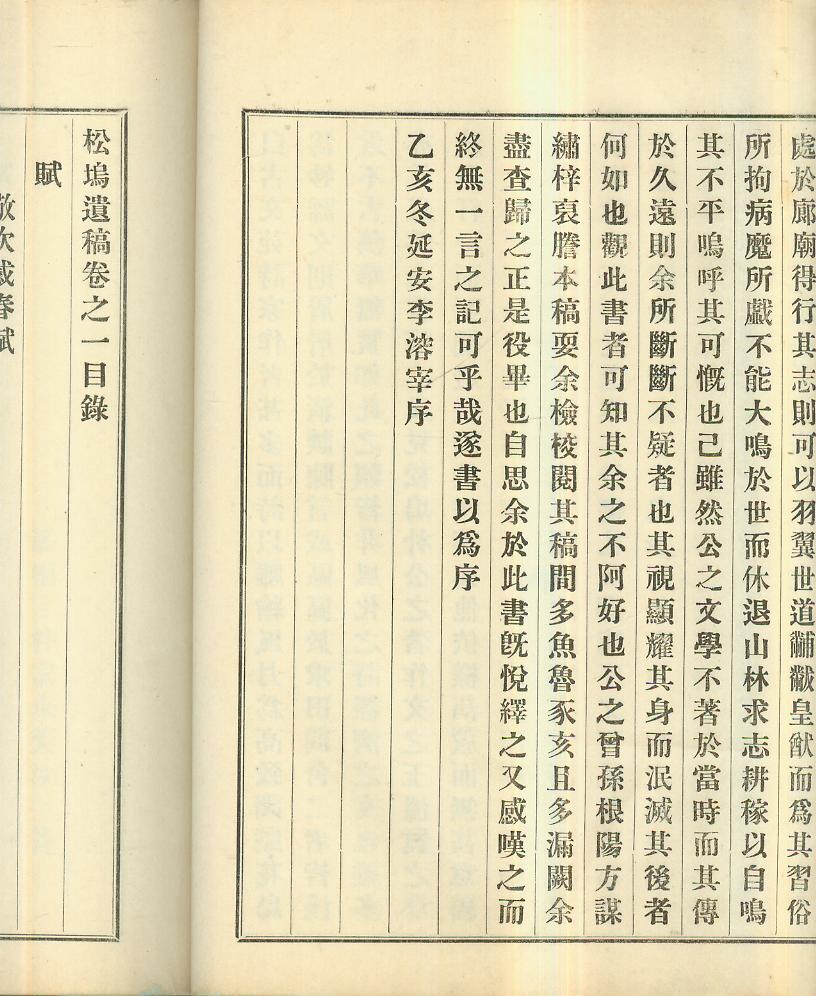 處於廊廟得行其志則可以羽翼世道黼黻皇猷而爲其習俗
所拘病魔所戱不能大鳴於世而休退山林求志耕稼以自鳴
其不平嗚呼其可慨也已雖然公之文學不著於當時而其傳
於久遠則余所斷斷不疑者也其視顯耀其身而泯滅其後者
何如也觀此書者可知其余之不阿好也公之曾孫根陽方謀
繡梓裒謄本稿要余檢校閱其稿間多魚魯豕亥且多漏闕余
盡查歸之正是役畢也自思余於此書旣悅繹之又感嘆之而
終無一言之記可乎哉遂書以爲序
乙亥冬延安李溶宰序
松塢遺稿卷之一目錄
賦
敬次感春賦